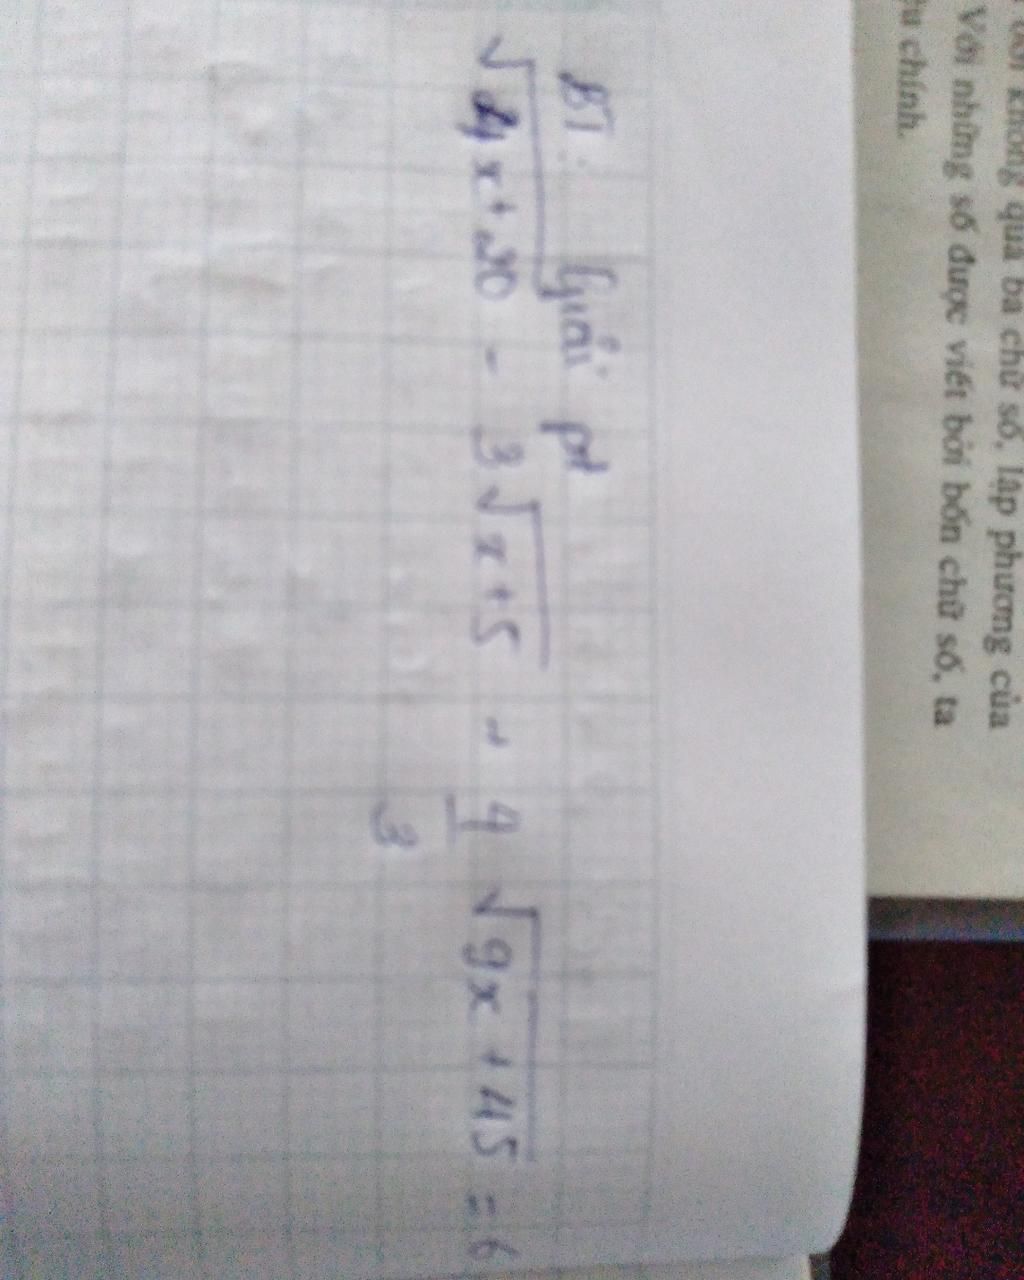 không quá ba chữ số, lập phương của
Với những số được viết bởi bốn chữ số, ta
chính.
B1: Giải pt
√4x+20 - 3√x+5 + 4/3 √9x+45 = 6